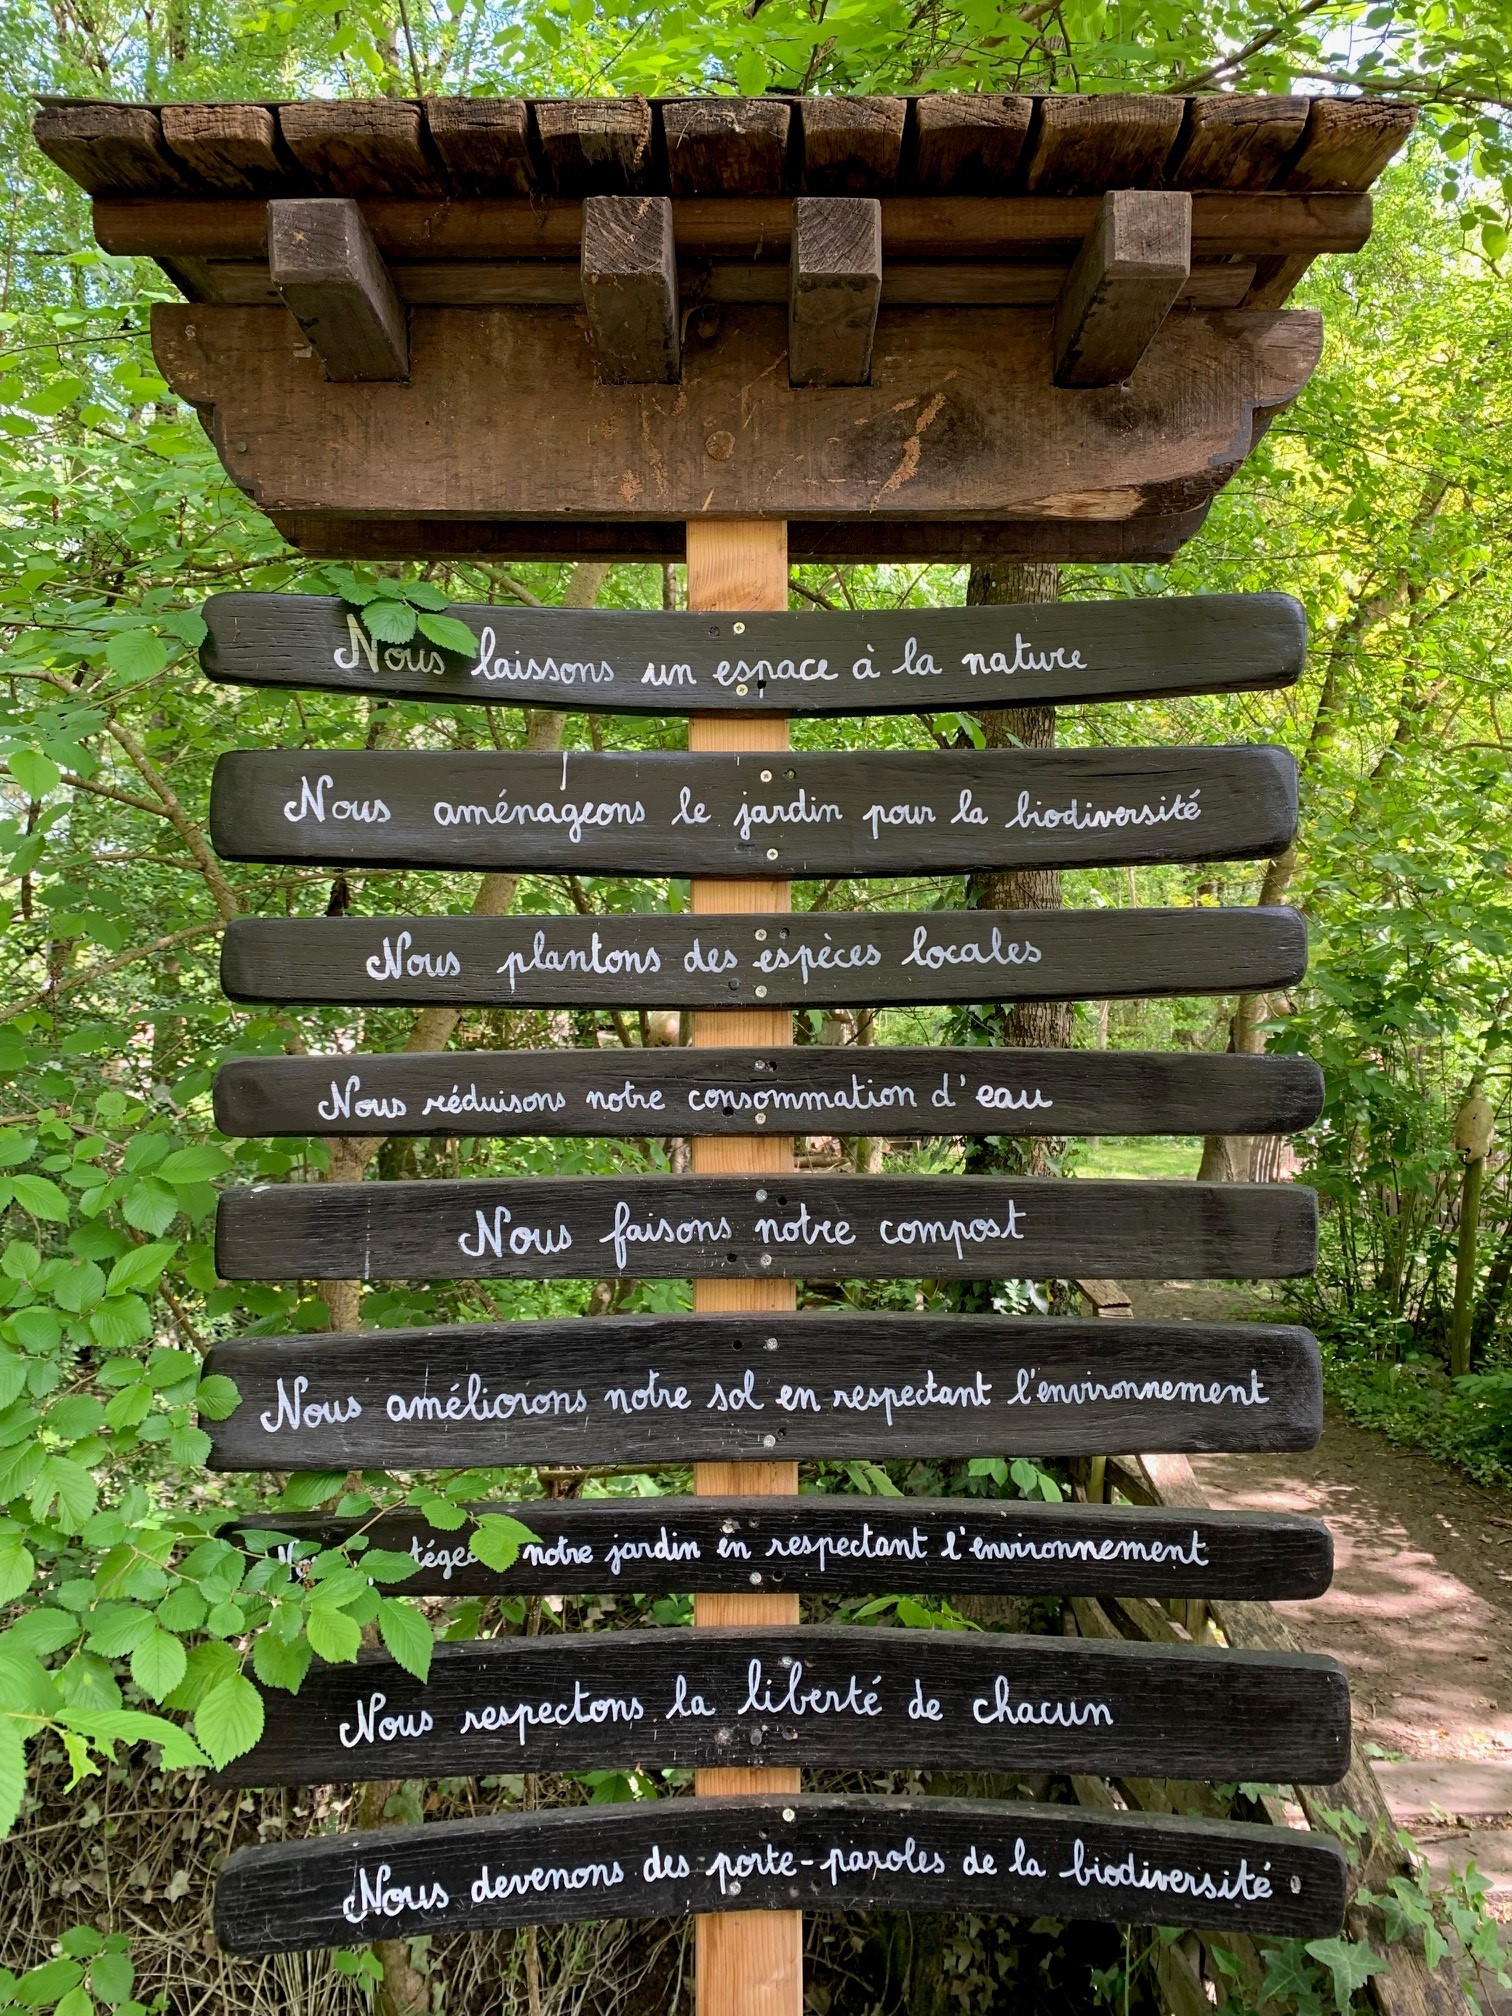 Nous laissons un espace à la nature
Nous aménageons le jardin pour la biodiversité
Nous plantons des espèces locales
Nous réduisons notre consommation d'eau
Nous faisons notre compost
Nous améliorons notre sol en respectant l'environnement
notre jardin en respectant l'environnement
Nous respectons la liberté de chacun
Nous devenons des porte-paroles de la biodiversité